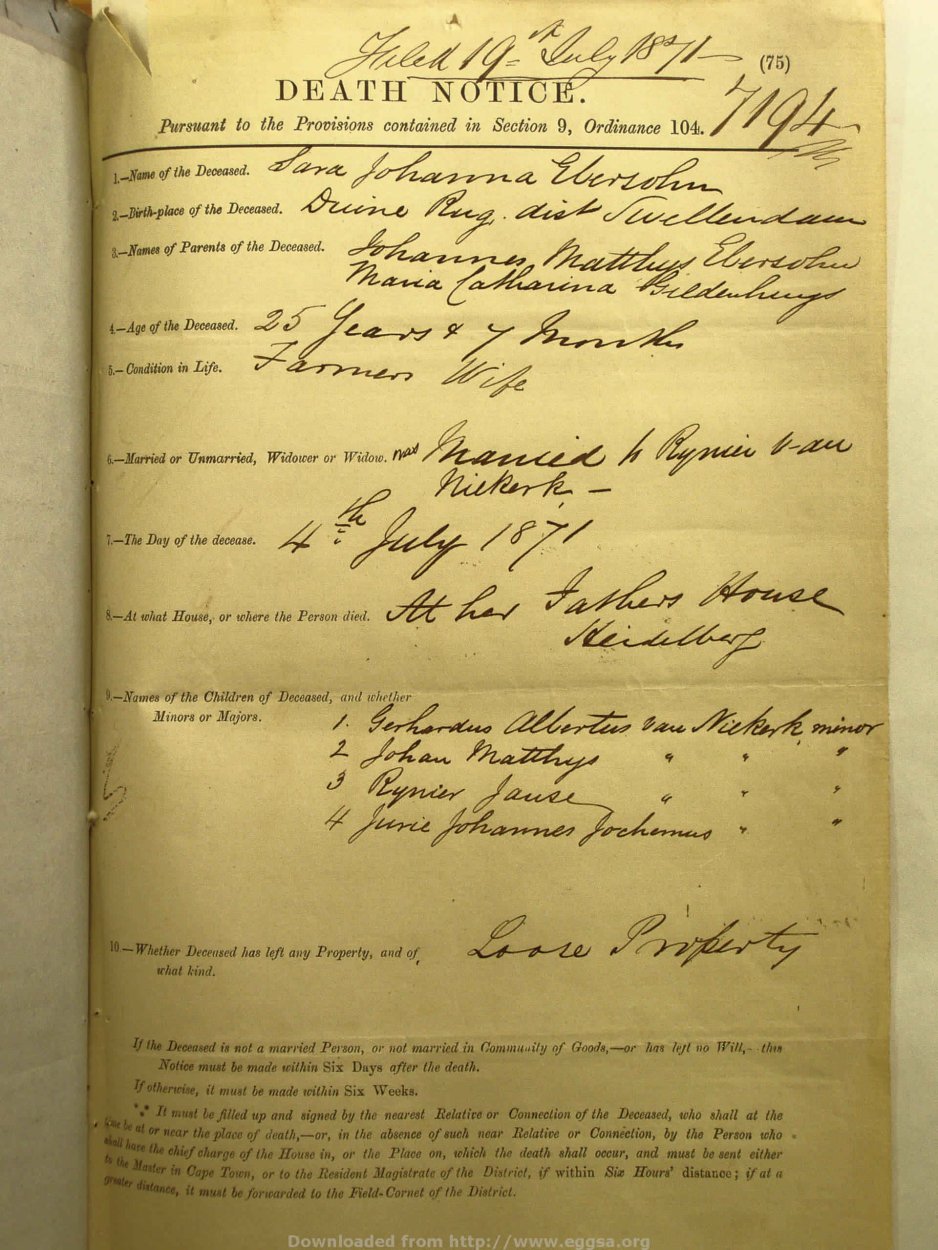 Filed 19th July 1871 (75)
DEATH NOTICE. 7194
Pursuant to the Provisions contained in Section 9, Ordinance 104.
1.—Name of the Deceased. Sara Johanna Ebersohn
2.—Birth-place of the Deceased. Duine Rug. dist Swellendam
3.—Names of Parents of the Deceased. Johannes Matthys Ebersohn
Maria Catharina Gildenhuys
4.—Age of the Deceased. 25 Years & 7 Months
5.—Condition in Life. Farmers Wife
6.—Married or Unmarried, Widower or Widow. was Married to Rynier van
Niekerk —
7.—The Day of the decease. 4th July 1871
8.—At what House, or where the Person died. At her Fathers House
Heidelberg
9.—Names of the Children of Deceased, and whether
Minors or Majors. 1. Gerhardus Albertus van Niekerk minor
2 Johan Matthys " " "
3 Rynier Janse " " "
4 Jurie Johannes Jochemus " "
10.—Whether Deceased has left any Property, and of Loose Property
what kind.
If the Deceased is not a married Person, or not married in Community of Goods,—or has left no Will,—this
Notice must be made within Six Days after the death.
If otherwise, it must be made within Six Weeks.
*** It must be filled up and signed by the nearest Relative or Connection of the Deceased, who shall at the
time be at or near the place of death,—or, in the absence of such near Relative or Connection, by the Person who
shall have the chief charge of the House in, or the Place on, which the death shall occur, and must be sent either
to the Master in Cape Town, or to the Resident Magistrate of the District, if within Six Hours' distance; if at a
greater distance, it must be forwarded to the Field-Cornet of the District.
Downloaded from http://www.eggsa.org